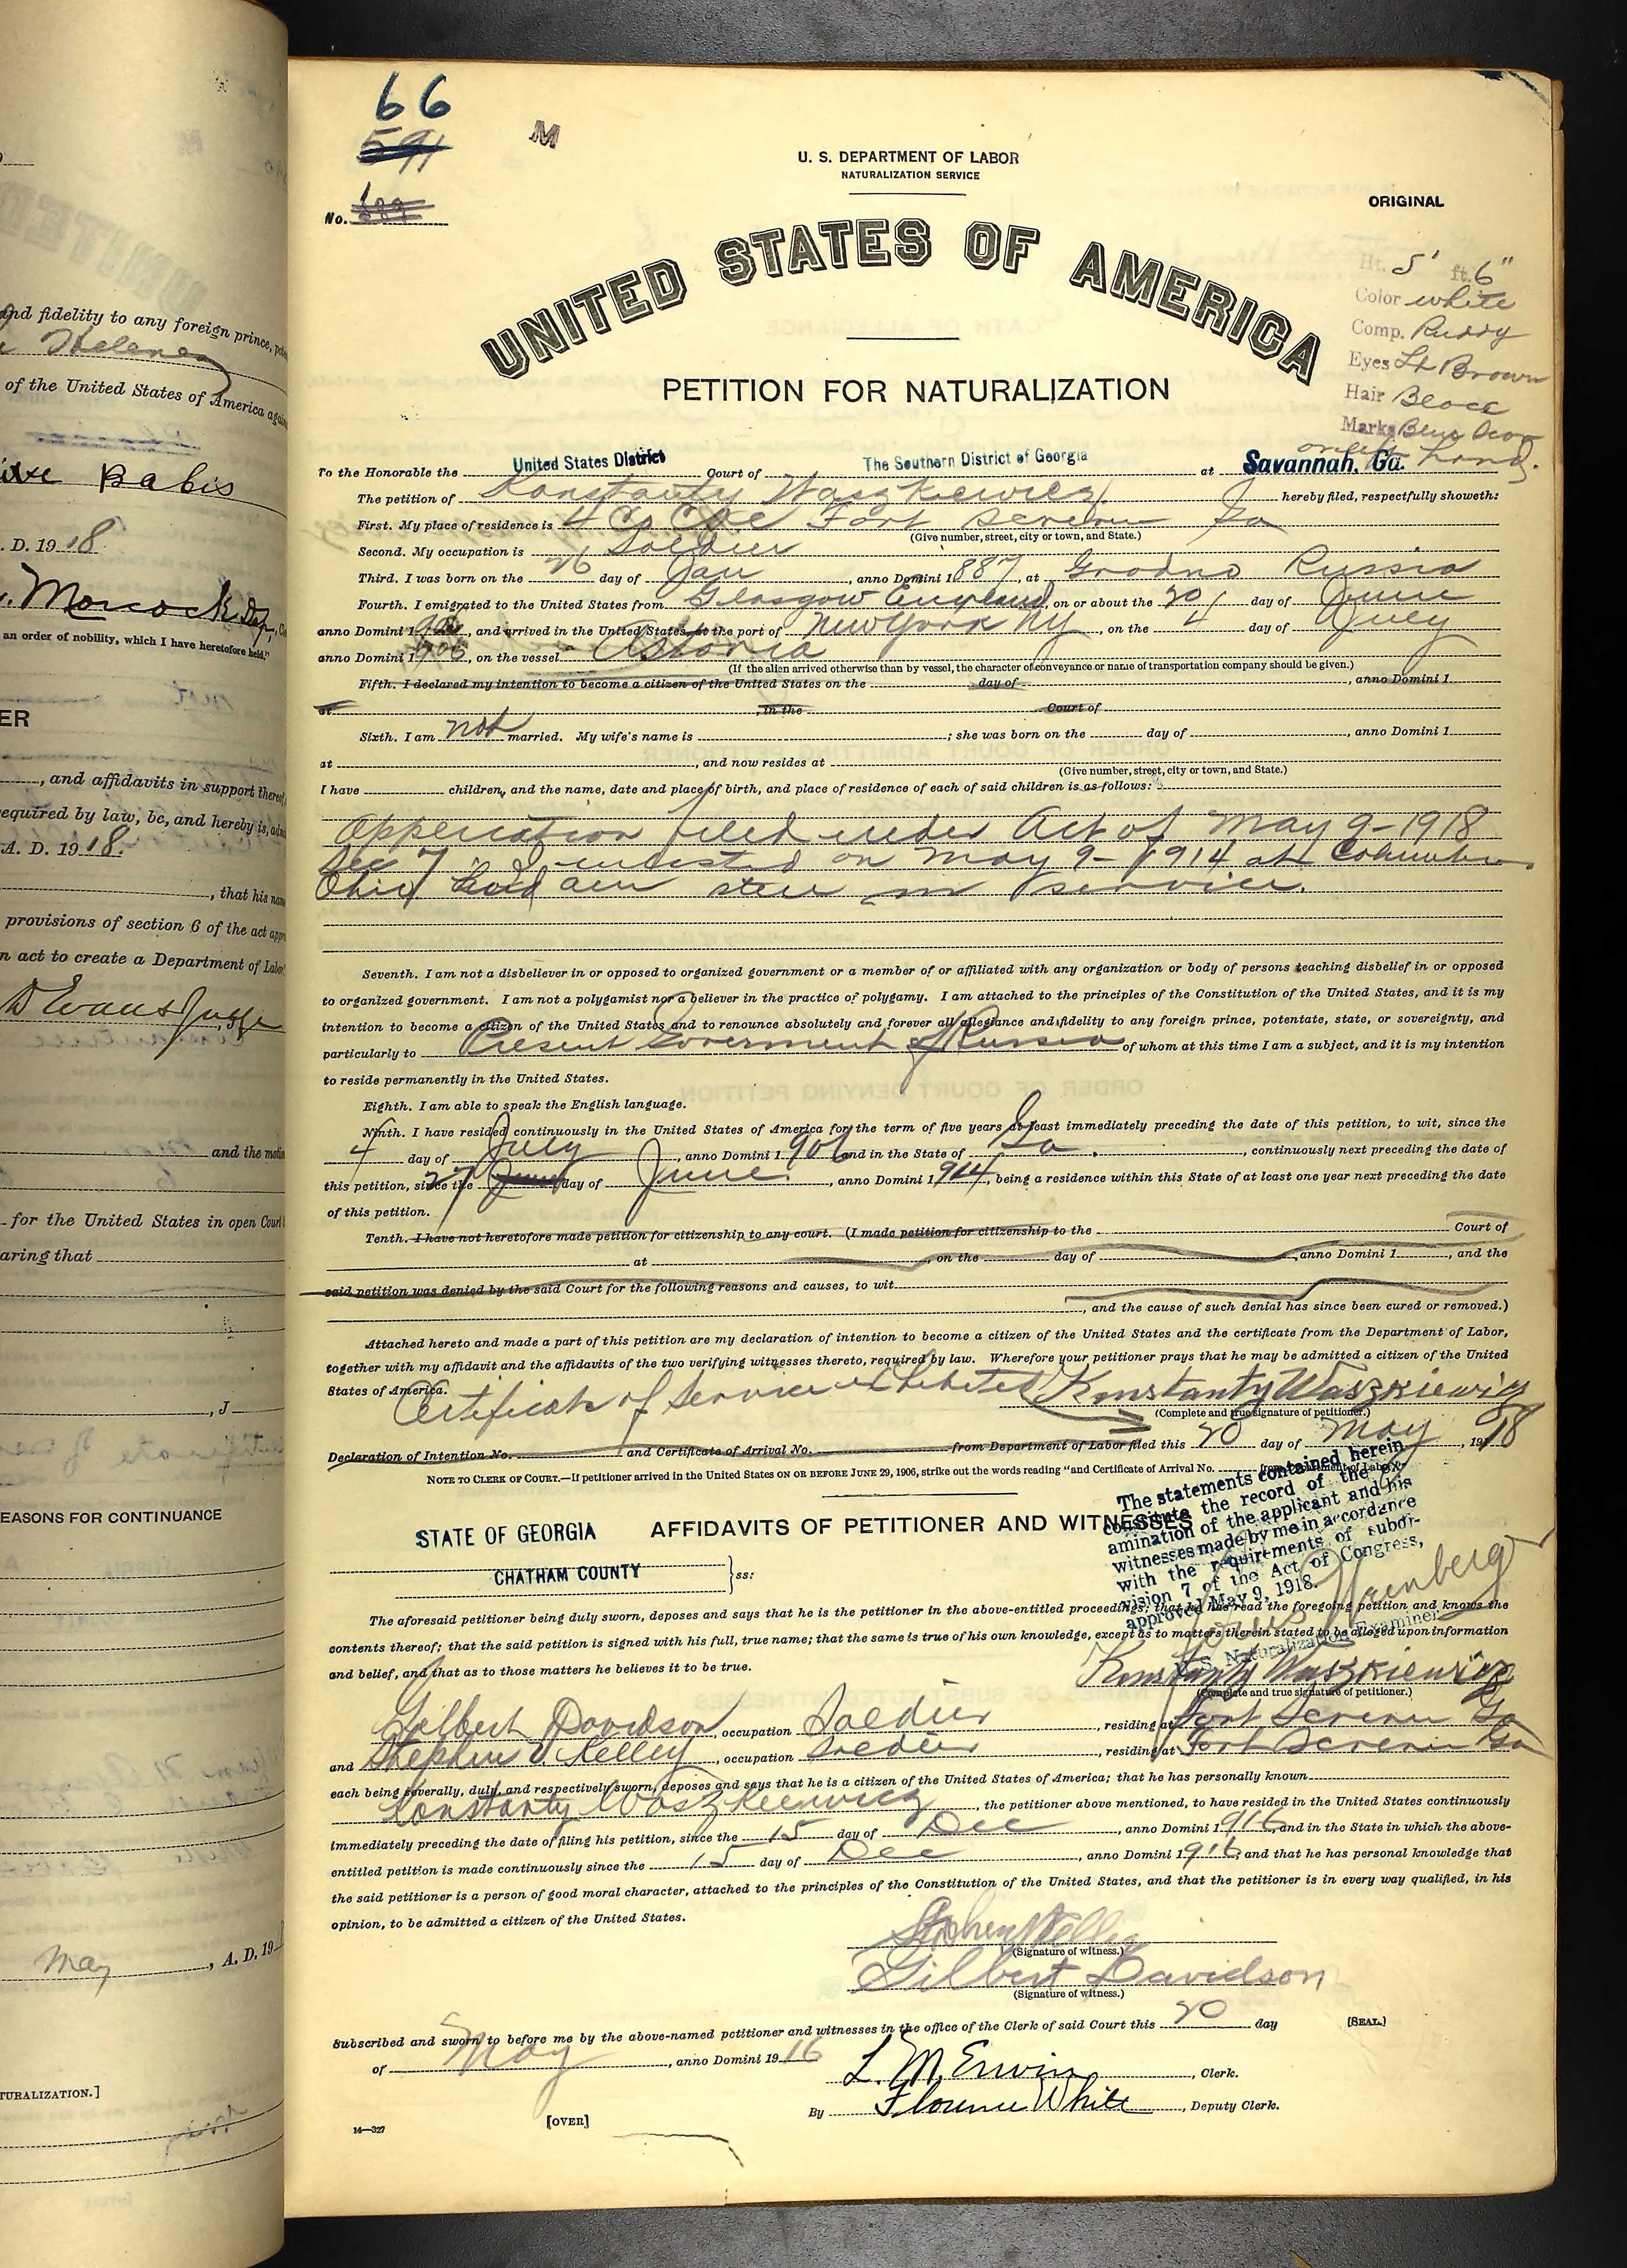 and fidelity to any foreign prince,
of the United States of America
Babis
. D. 19 18
Morcock
an order of nobility, which I have heretofore held."
ER
, and affidavits in support
required by law, be, and hereby is,
A. D. 19 18.
, that his
provisions of section 6 of the act
n act to create a Department of Labor
D Evans Judge
and the
for the United States in open Court
aring that
, J
EASONS FOR CONTINUANCE
May , A. D. 19
TURALIZATION.]
66
591
M
No.
U. S. DEPARTMENT OF LABOR
NATURALIZATION SERVICE
ORIGINAL
UNITED STATES OF AMERICA
PETITION FOR NATURALIZATION
Ht. 5' ft. 6"
Color white
Comp. Ruddy
Eyes Lt Brown
Hair Black
Marks
on left hand.
To the Honorable the United States District Court of The Southern District of Georgia at Savannah, Ga.
The petition of Konstanty Waszkiewicz hereby filed, respectfully showeth:
First. My place of residence is 4 Co CAC Fort Screven Ga
(Give number, street, city or town, and State.)
Second. My occupation is Soldier
Third. I was born on the 26 day of Jan , anno Domini 1887, at Grodno Russia
Fourth. I emigrated to the United States from Glasgow England, on or about the 20 day of June
anno Domini 1906, and arrived in the United States, at the port of New York NY, on the 4 day of July
anno Domini 1906, on the vessel Astoria
(If the alien arrived otherwise than by vessel, the character of conveyance or name of transportation company should be given.)
Fifth. I declared my intention to become a citizen of the United States on the day of , anno Domini 1
at , in the Court of
Sixth. I am not married. My wife's name is ; she was born on the day of , anno Domini 1
at , and now resides at
(Give number, street, city or town, and State.)
I have children, and the name, date and place of birth, and place of residence of each of said children is as follows:
Application filed under Act of May 9-1918
Sec 7. I enlisted on May 9-1914 at Columbus
Ohio and am still in service.
Seventh. I am not a disbeliever in or opposed to organized government or a member of or affiliated with any organization or body of persons teaching disbelief in or opposed
to organized government. I am not a polygamist nor a believer in the practice of polygamy. I am attached to the principles of the Constitution of the United States, and it is my
intention to become a citizen of the United States and to renounce absolutely and forever all allegiance and fidelity to any foreign prince, potentate, state, or sovereignty, and
particularly to Present Government of Russia of whom at this time I am a subject, and it is my intention
to reside permanently in the United States.
Eighth. I am able to speak the English language.
Ninth. I have resided continuously in the United States of America for the term of five years at least immediately preceding the date of this petition, to wit, since the
4 day of July , anno Domini 1906 and in the State of Ga. , continuously next preceding the date of
this petition, since the 27 day of June , anno Domini 1914, being a residence within this State of at least one year next preceding the date
of this petition.
Tenth. I have not heretofore made petition for citizenship to any court. (I made petition for citizenship to the Court of
at , on the day of , anno Domini 1 , and the
said petition was denied by the said Court for the following reasons and causes, to wit
, and the cause of such denial has since been cured or removed.)
Attached hereto and made a part of this petition are my declaration of intention to become a citizen of the United States and the certificate from the Department of Labor,
together with my affidavit and the affidavits of the two verifying witnesses thereto, required by law. Wherefore your petitioner prays that he may be admitted a citizen of the United
States of America.
Certificate of Service exhibited Konstanty Waszkiewicz
(Complete and true signature of petitioner.)
Declaration of Intention No. and Certificate of Arrival No. from Department of Labor filed this 20 day of May , 1918
NOTE TO CLERK OF COURT.—If petitioner arrived in the United States ON OR BEFORE JUNE 29, 1906, strike out the words reading "and Certificate of Arrival No. from Department of Labor."
The statements contained herein
constitute the record of the ex-
amination of the applicant and his
witnesses made by me in accordance
with the requirements of subdi-
vision 7 of the Act of Congress,
approved May 9, 1918.
U. S. Naturalization Examiner
AFFIDAVITS OF PETITIONER AND WITNESSES
STATE OF GEORGIA
CHATHAM COUNTY
ss:
The aforesaid petitioner being duly sworn, deposes and says that he is the petitioner in the above-entitled proceedings; that he has read the foregoing petition and knows the
contents thereof; that the said petition is signed with his full, true name; that the same is true of his own knowledge, except as to matters therein stated to be alleged upon information
and belief, and that as to those matters he believes it to be true.
Konstanty Waszkiewicz
(Complete and true signature of petitioner.)
Gilbert Davidson, occupation Soldier , residing at Fort Screven Ga
and Stephen J Kelley, occupation Soldier , residing at Fort Screven Ga
each being severally, duly, and respectively sworn, deposes and says that he is a citizen of the United States of America; that he has personally known
Konstanty Waszkiewicz , the petitioner above mentioned, to have resided in the United States continuously
immediately preceding the date of filing his petition, since the 15 day of Dec , anno Domini 1916, and in the State in which the above-
entitled petition is made continuously since the 15 day of Dec , anno Domini 1916, and that he has personal knowledge that
the said petitioner is a person of good moral character, attached to the principles of the Constitution of the United States, and that the petitioner is in every way qualified, in his
opinion, to be admitted a citizen of the United States.
Stephen J Kelley
(Signature of witness.)
Gilbert Davidson
(Signature of witness.)
Subscribed and sworn to before me by the above-named petitioner and witnesses in the office of the Clerk of said Court this 20 day
[SEAL.]
of May , anno Domini 19 16
L. M. Erwin , Clerk.
By Florence White , Deputy Clerk.
14—327
[OVER]